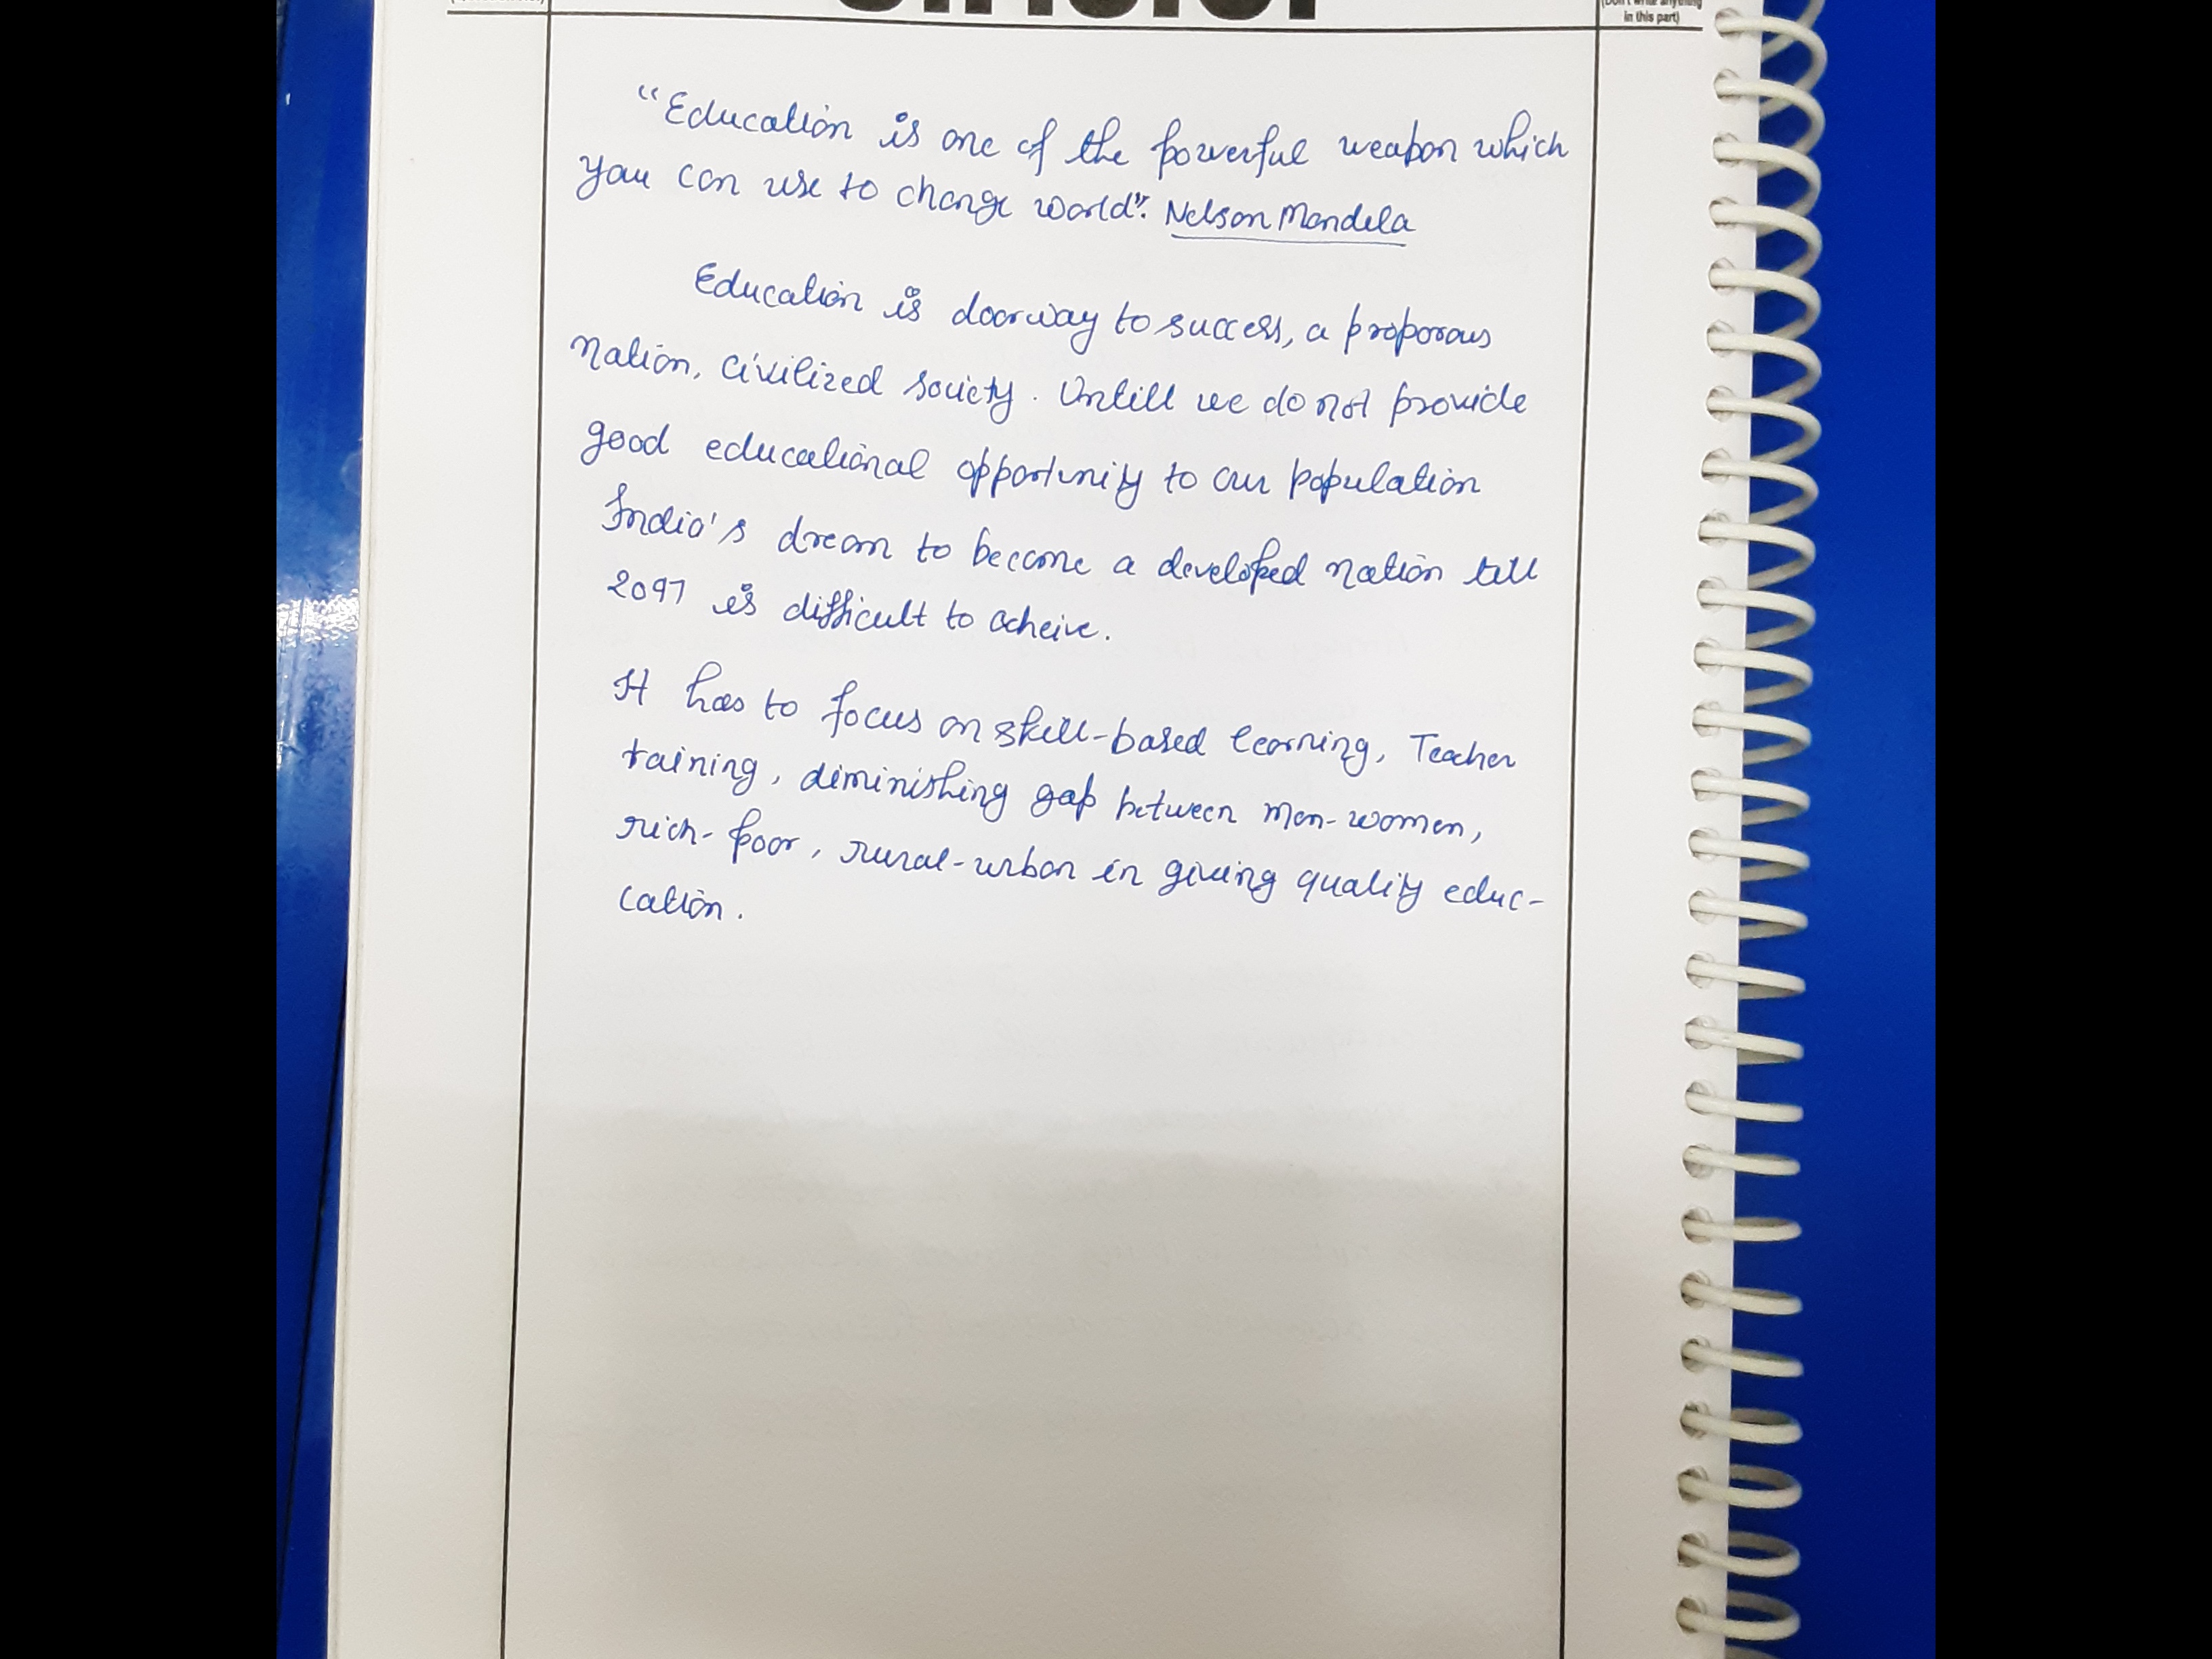 (Don't write anything
in this part)
"Education is one of the powerful weapon which
you can use to change world". Nelson Mandela
Education is doorway to success, a proporous
nation, civilized society. Untill we do not provide
good educational opportunity to our population
India's dream to become a developed nation till
2097 is difficult to acheive.
It has to focus on skill-based learning, Teacher
training, diminishing gap between men-women,
rich-poor, rural-urban in giving quality educ-
cation.